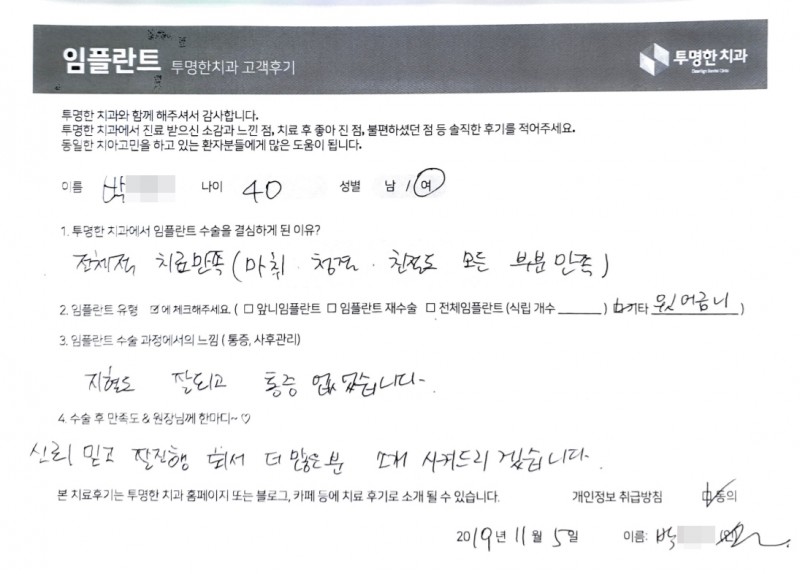 임플란트 투명한치과 고객후기 투명한 치과
투명한 치과와 함께 해주셔서 감사합니다.
투명한 치과에서 진료 받으신 소감과 느낀 점, 치료 후 좋아 진 점, 불편하셨던 점 등 솔직한 후기를 적어주세요.
동일한 치아고민을 하고 있는 환자분들에게 많은 도움이 됩니다.
이름 박 나이 40 성별 남 / 여
1. 투명한 치과에서 임플란트 수술을 결심하게 된 이유?
전체적 치료만족 (마취 · 청결 · 친절도 모든 부분 만족)
2. 임플란트 유형 ☑에 체크해주세요. ( □ 앞니임플란트 □ 임플란트 재수술 □ 전체임플란트 (식립 개수 ______ ) ☑기타 윗어금니 )
3. 임플란트 수술 과정에서의 느낌 ( 통증, 사후관리)
지혈도 잘되고 통증 없었습니다.
4. 수술 후 만족도 & 원장님께 한마디~ ♡
신뢰 믿고 잘진행 되서 더 많은분 소개 시켜드리겠습니다.
본 치료후기는 투명한 치과 홈페이지 또는 블로그, 카페 등에 치료 후기로 소개 될 수 있습니다. 개인정보 취급방침 ☑동의
2019년 11월 5일 이름: 박